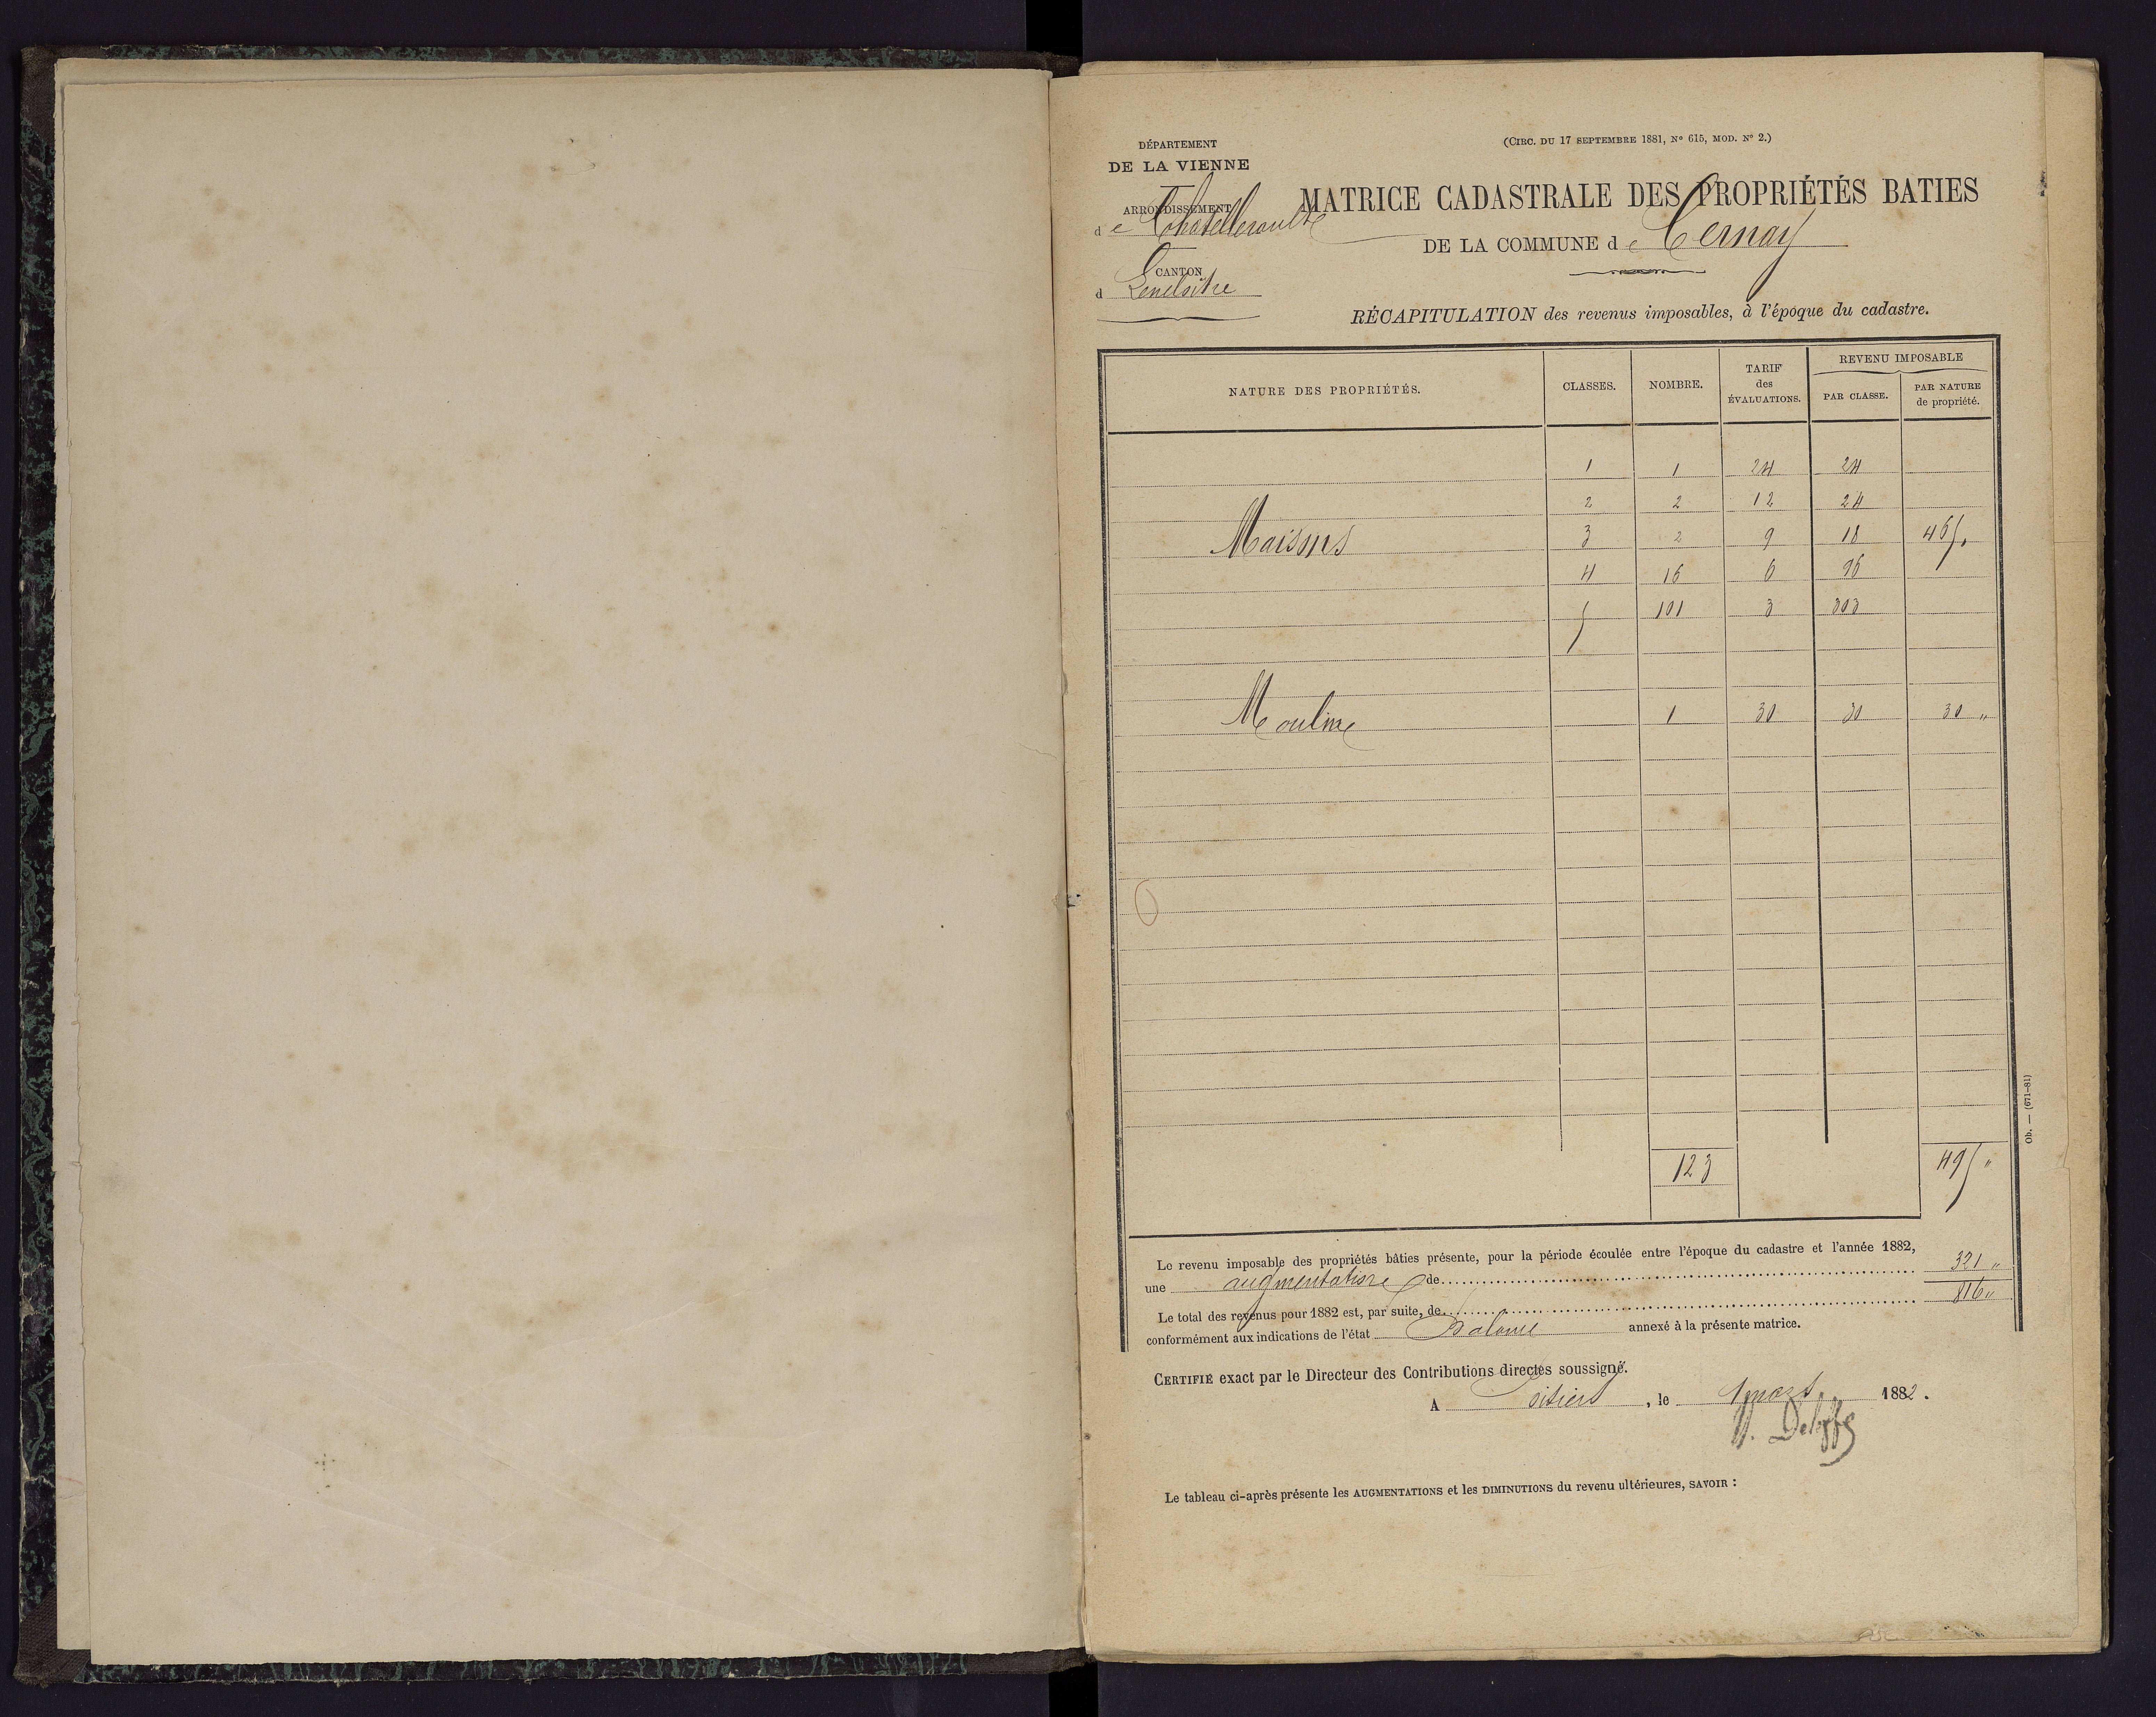 (CIRC. DU 17 SEPTEMBRE 1881, N° 615, MOD. N° 2.)
DÉPARTEMENT
DE LA VIENNE
ARRONDISSEMENT
de Chatellerault
CANTON
d Lencloître
MATRICE CADASTRALE DES PROPRIÉTÉS BATIES
DE LA COMMUNE de Cernay
RÉCAPITULATION des revenus imposables, à l'époque du cadastre.
NATURE DES PROPRIÉTÉS. CLASSES. NOMBRE. TARIF des ÉVALUATIONS. REVENU IMPOSABLE PAR CLASSE. PAR NATURE de propriété.
1 1 24 24
2 2 12 24
Maisons 3 2 9 18 465 "
4 16 6 96
5 101 3 303
Moulin 1 30 30 30 "
123 495 "
Le revenu imposable des propriétés bâties présente, pour la période écoulée entre l'époque du cadastre et l'année 1882,
une augmentation de 321 "
Le total des revenus pour 1882 est, par suite, de 816 "
conformément aux indications de l'état annexé à la présente matrice.
CERTIFIÉ exact par le Directeur des Contributions directes soussigné.
A Poitiers, le 1 mars 1882.
Le tableau ci-après présente les AUGMENTATIONS et les DIMINUTIONS du revenu ultérieures, SAVOIR :
Ob. — (671-81)